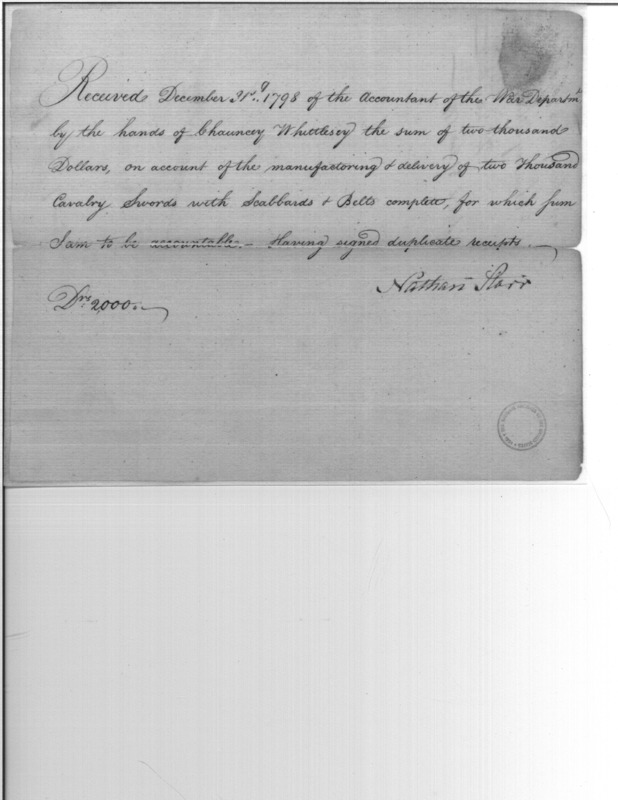 Received December 31st. 1798 of the Accountant of the War Departmt
by the hands of Chauncey Whittlesey the sum of two thousand
Dollars, on account of the manufactoring & delivery of two thousand
Cavalry Swords with Scabbards & Belts complett, for which sum
I am to be accountable. – Having signed duplicate receipts.
Nathan Starr
Drs 2,000..